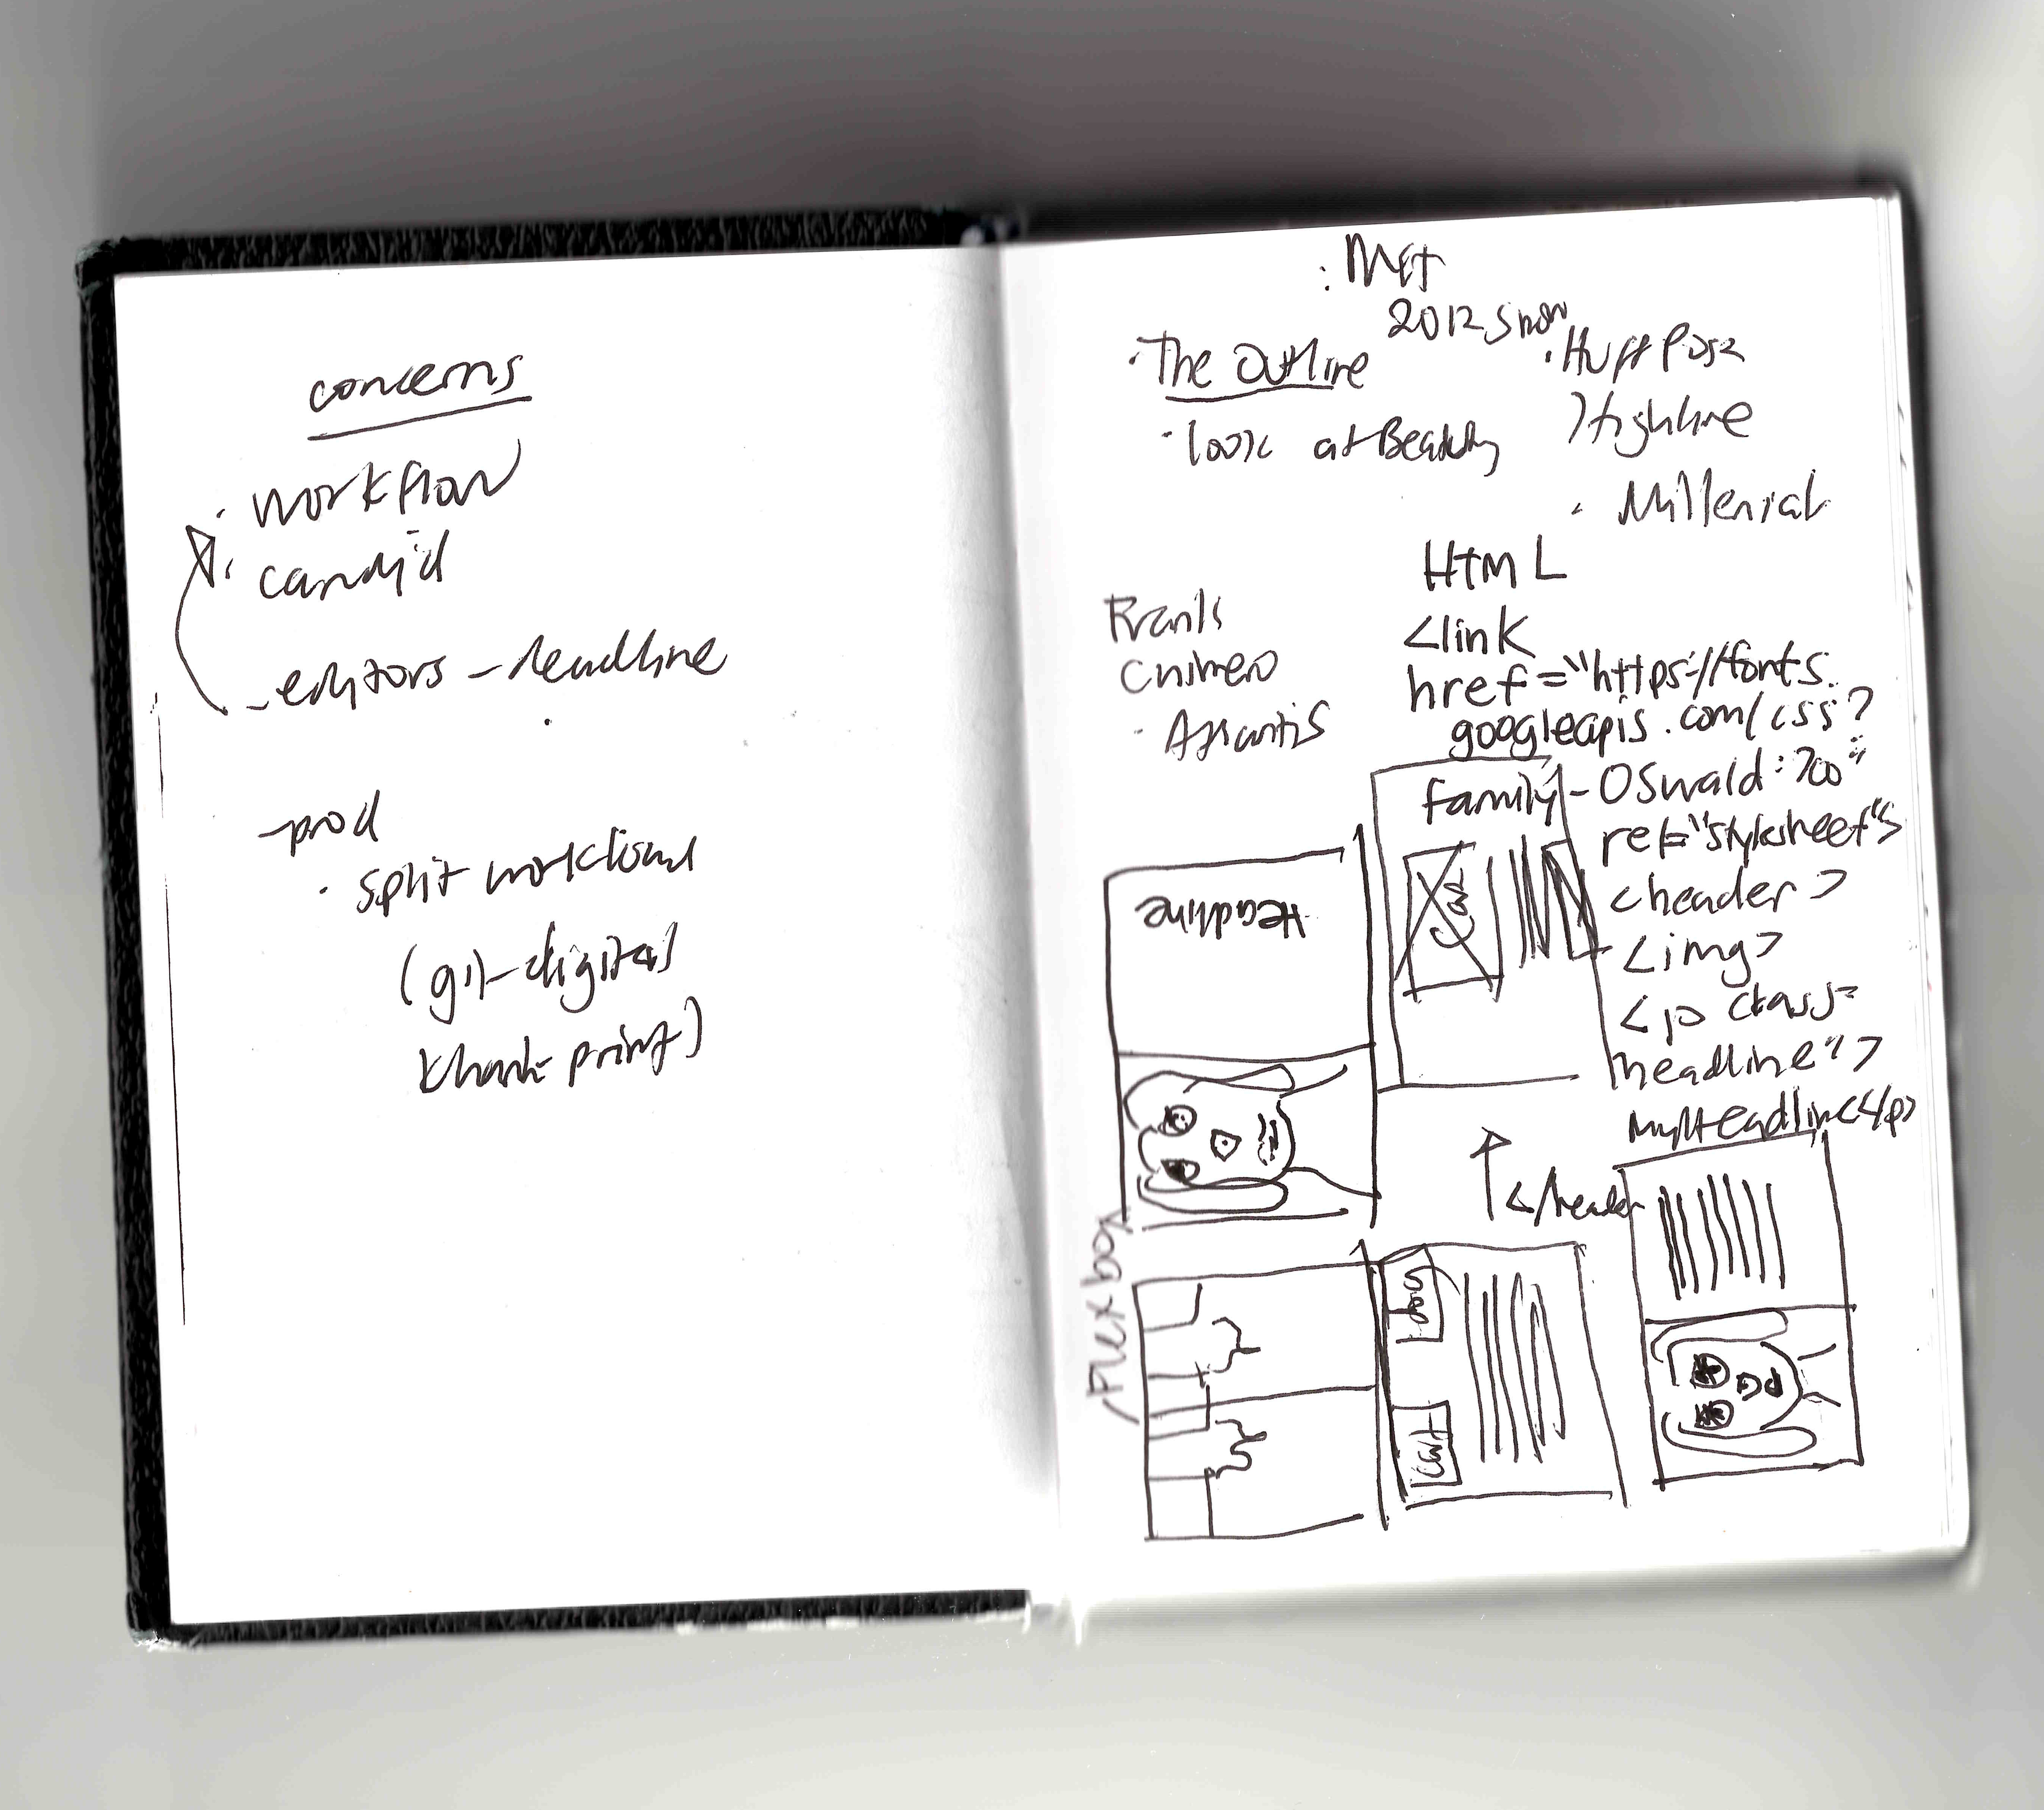 concerns
· workflow
· candid
- editors - deadline
- prod
· split workflow
(git - digital
print)
: Met
2012 Snow
· The Outline
· look at Beauty
· Huff Post
Highline
· Millenial
Frank
Chimero
· Atlantis
HTML
<link
href="https://fonts.
googleapis.com/css?
family=Oswald:700"
rel="stylesheet">
<header>
<img>
<p class=
headline">
myHeadline</p>
</header
Headline
Flexbox